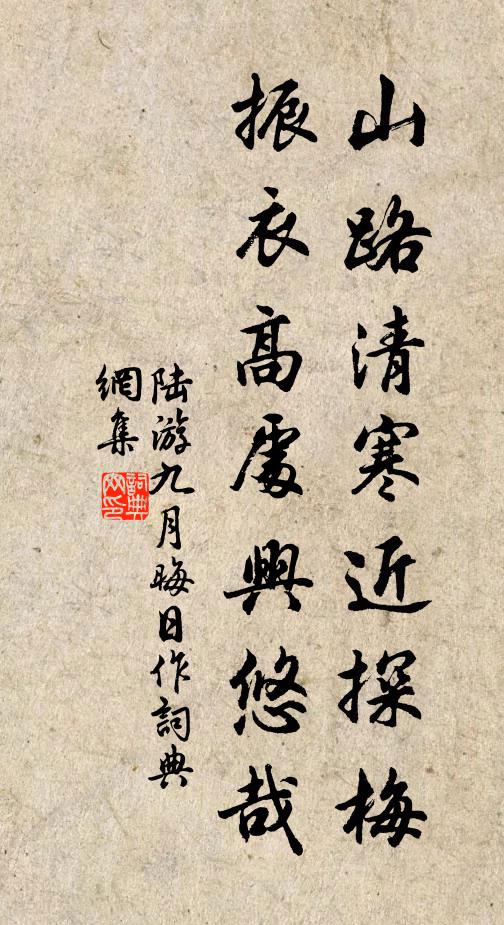 山路清寒近探梅
振衣高處興悠哉
陸游九月晦日作詞典
網集
詞典
网印